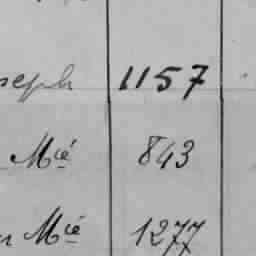 seph 1157
Mié 843
Mié 1277